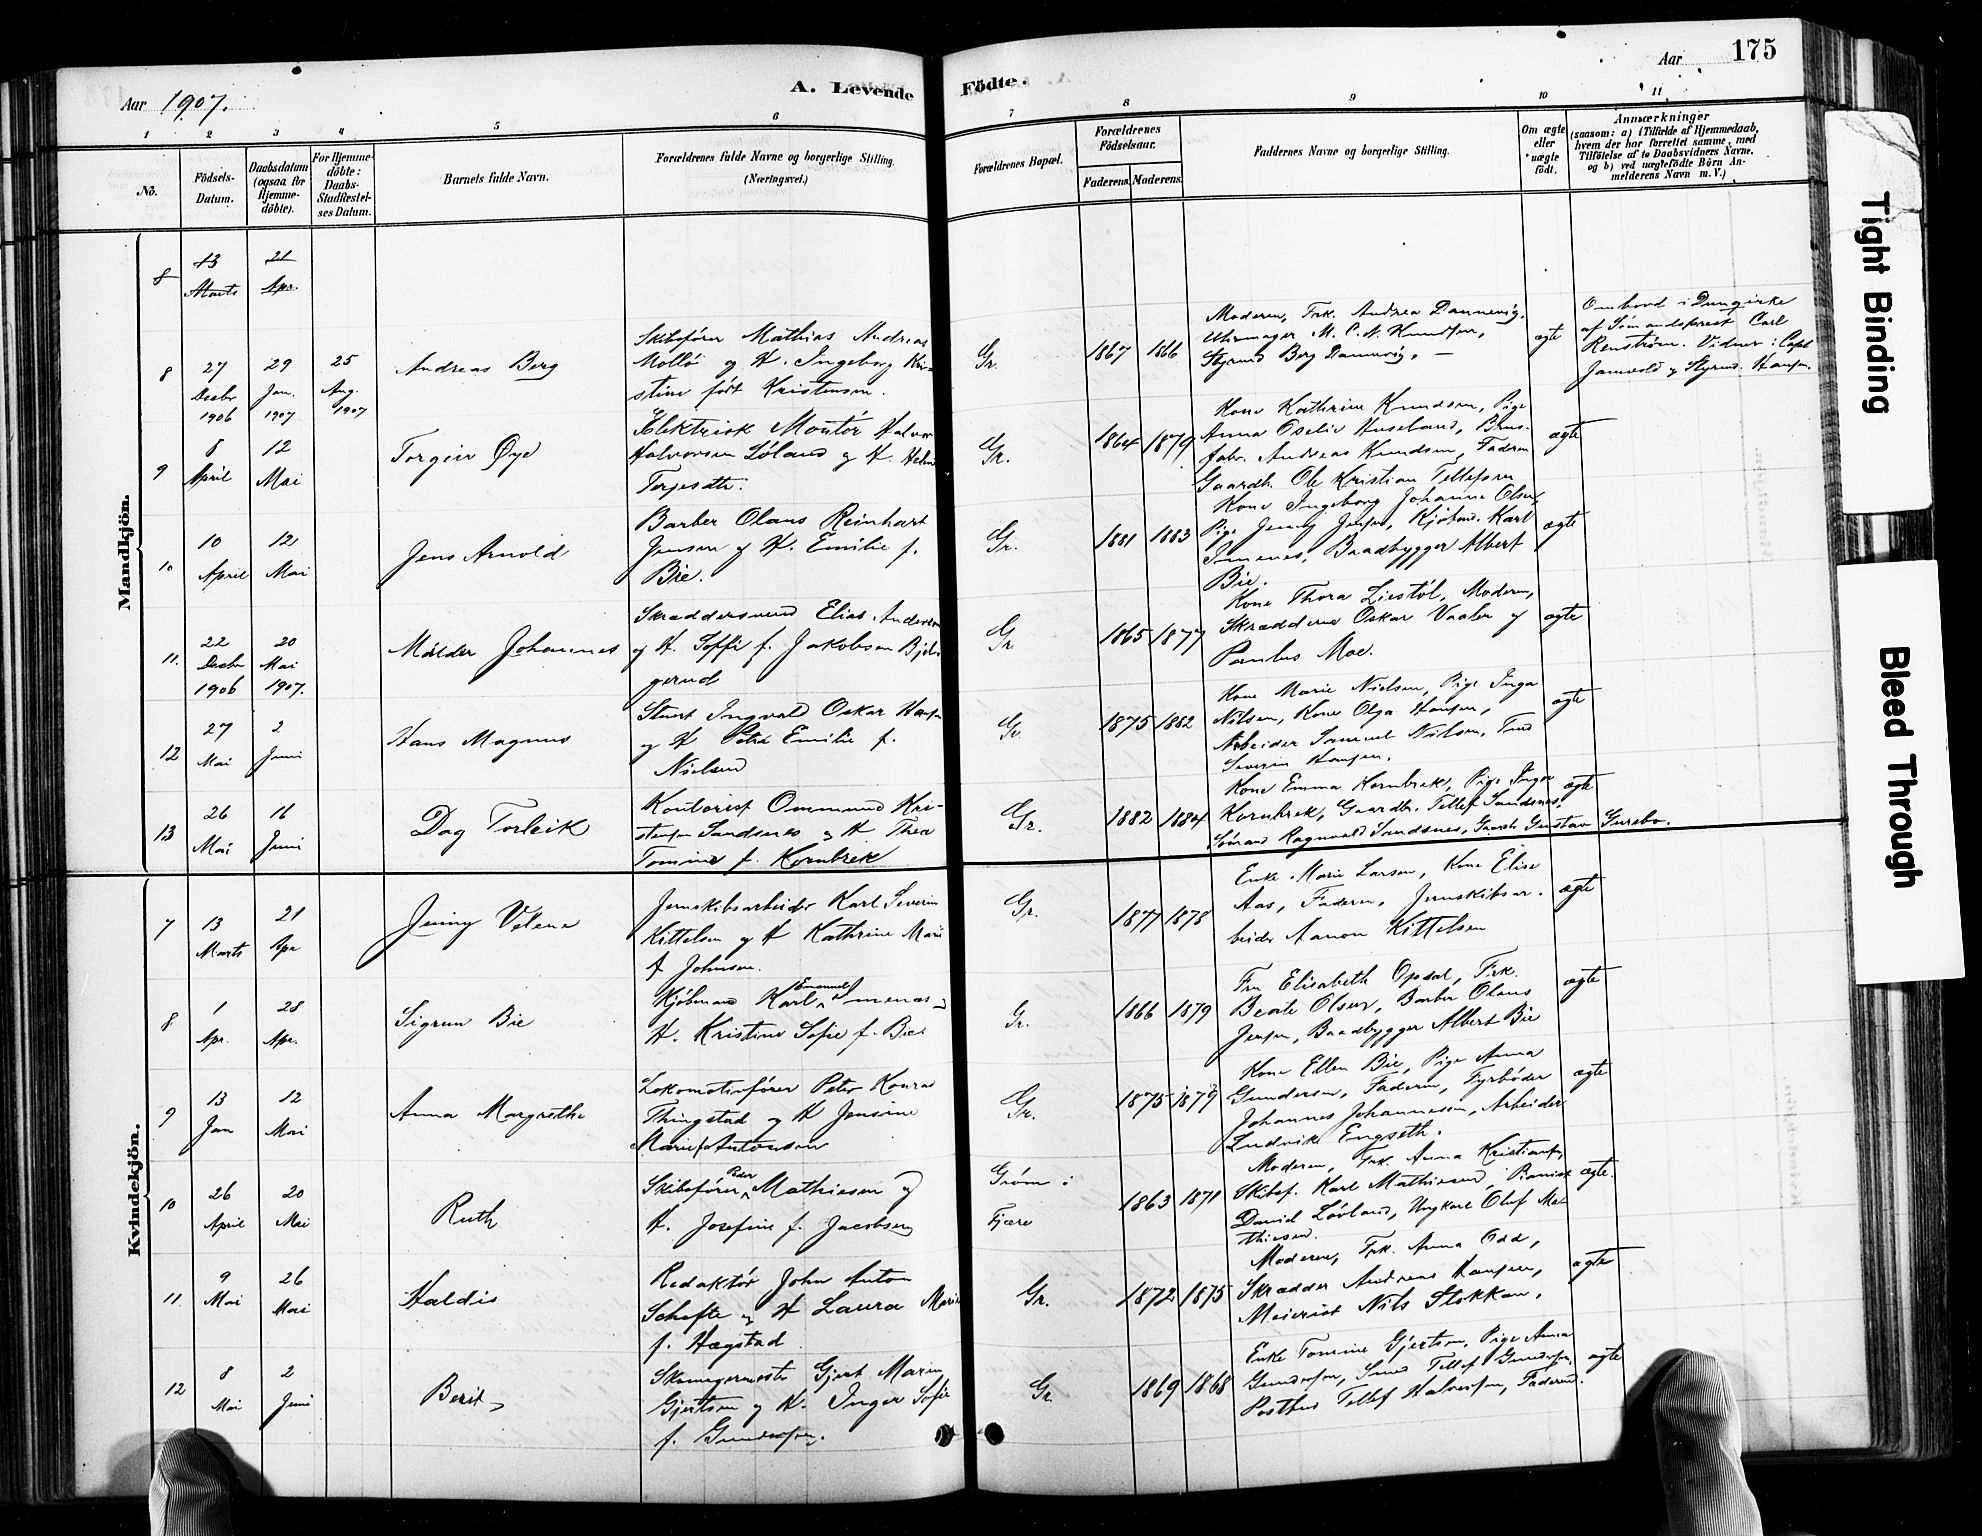 175
Aar 1907.
A. Levende Födte.
Aar
1 2 3 4 5 6 7 8 9 10 11
No.
Födsels-Datum.
Daabsdatum (ogsaa for Hjemme-döbte).
For Hjemme-döbte: Daabs-Stadfæstel-ses Datum.
Barnets fulde Navn.
Forældrenes fulde Navne og borgerlige Stilling. (Næringsvei.)
Forældrenes Bopæl.
Forældrenes Födselsaar.
Faderens. Moderens.
Faddernes Navne og borgerlige Stilling.
Om ægte eller uægte födt.
Anmærkninger
(saasom: a) i Tilfælde af Hjemmedaab,
hvem der har forrettet samme, med
Tilföielse af to Daabsvidners Navne.
og b) ved uægtefödte Börn An-
melderens Navn m. V.)
Mandkjön.
8 13 Marts 21 Apr.
8 27 Decbr 1906 29 Jan. 1907 25 Aug. 1907
Andreas Berg
Skibsfører Mathias Andreas
Molløi og H. Ingeborg Kri-
stine født Kristensen.
Gr. 1867 1866
Moderen, Frk. Andrea Dannevig,
Uhrmager M. C. N. Knudsen,
Styrmd Berg Dannevig. —
ægte
Ombord i Dunqirke
af Sømandsprest Carl
Renström. Vidner: Capt
Jamvold og Styrmd. Hansen.
9 8 April 12 Mai
Torgeir Øye
Elektrisk Montør Halvor
Halvorsen Løland og H. Helene
Terjesdtr.
Gr. 1864 1879
Kone Kathrine Knudsen, Pige
Anna Oselie Huseland, Brus-
fabr. Andreas Knudsen, Faderen
Gaardb. Ole Kristian Tellefsen
ægte
10 10 April 12 Mai
Jens Arnold
Barber Olaus Reinhart
Jensen og H. Emilie f.
Bie.
Gr. 1881 1883
Kone Ingeborg Johanne Olsen,
Pige Jenny Jensen, Kjøbmd. Karl
Imenes, Baadbygger Albert
Bie.
ægte
11. 22 Decbr 1906 20 Mai 1907.
Meider Johannes
Skræddersvend Elias Andersen
og H. Soffie f. Jakobsen Bjel-
gerud
Gr 1865 1877
Kone Thora Liestøl, Moderen,
Skrædderne Oskar Vaaler og
Paulus Moe.
ægte
12 27 Mai 2 Juni
Hans Magnus
Stuert Ingvald Oskar Hansen
og H Petra Emilie f.
Nielsen
Gr. 1875 1882
Kone Marie Nielsen, Pige Inga
Nilsen, Kone Olga Hansen,
Arbeider Samuel Nielsen,
Severin Hansen.
ægte
13 26 Mai 16 Juni
Dag Torleik
Kontorist Ommund Kri-
stensen Sandsnes og H Thea
Tomine f. Kornbrek
Gr. 1882 1884
Kone Emma Kornbrek, Pige Inger
Kornbrek, Gaardbr. Tellef Sandsnes,
Sømand Ragnvald Sandsnes, Gaardb. Gustav Gurebo.
ægte
Kvindekjön.
7 13 Marts 21 Apr
Jenny Velene
Jernskibsarbeider Karl Severin
Kittelsen og H Kathrine Marie
f Johnsen.
Gr. 1877 1878
Enke Marie Larsen, Kone Elise
Aas, Faderen, Jernskibsar-
beider Aanon Kittelsen
ægte
8 1 Apr. 28 Apr.
Sigrun Bie
Kjøbmand Karl Emanuel Imenæs og
H. Kristine Sofie f. Bie
Gr. 1866 1879
Fru Elisabeth Opsal, Frk.
Beate Olsen, Barber Olaus
Jensen, Baadbygger Albert Bie
ægte
9 13 Jan 12 Mai
Anna Margrethe
Lokomotivfører Peter Konrad
Thingstad og H Jensine
Marie f Antonsen
Gr. 1875 1879
Kone Ellen Bie, Pige Anna
Gundersen, Faderen, Fyrbøder
Johannes Johannesen, Arbeider
Ludvik Engseth.
ægte
10 26 April 20 Mai
Ruth
Skibsfører Peder Mathiesen og
H. Josefine f. Jacobsen
Grøm i
Fjære
1863 1871
Moderen, Frk. Anna Kristiansen,
Skibsf. Karl Mathiesen, Pianist
Daniel Løvland, Ungkarl Oluf Ma-
thiesen.
ægte.
11. 9 Mai 26 Mai
Haldis
Redaktør John Anton
Schefte og H Laura Marie
f. Hægstad
Gr. 1872 1875
Moderen, Frk. Anna Odd,
Skrædder Andreas Hansen,
Meierist Nils Stokkan,
ægte
12 8 Mai 2 Juni
Berit
Skomagermester Gjert Marin
Gjertsen og H. Inger Sofie
f. Gundersen.
Gr. 1869 1868
Enke Tomine Gjertsen, Pige Anna
Gundersen, Smed Tellef Gundersen,
Postbud Tellef Halvorsen, Faderen.
ægte
Tight Binding
Bleed Through